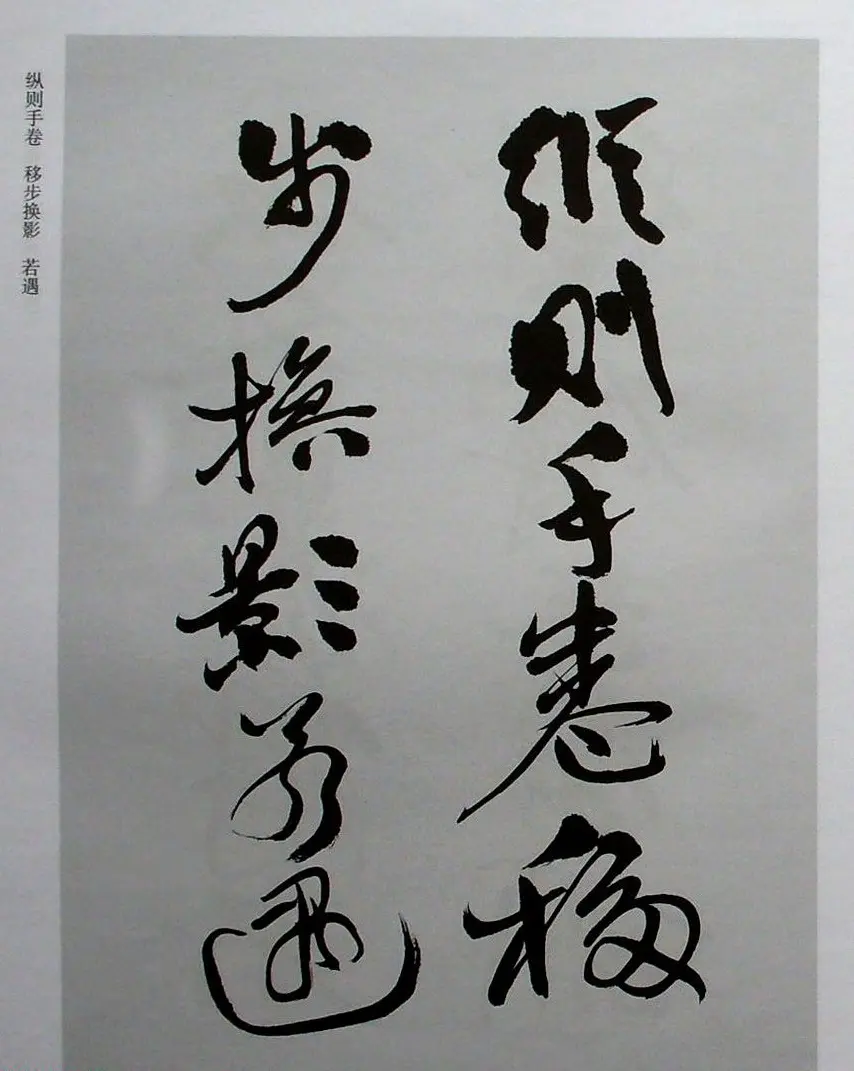 纵则手卷 移步换影 若遇
纵则手卷移
步换影若遇